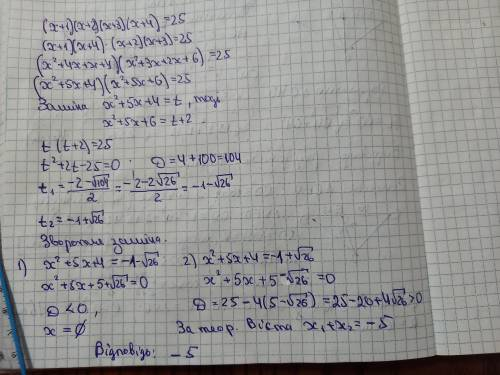 (x+1)(x+2)(x+3)(x+4)=25
(x+1)(x+4)·(x+2)(x+3)=25
(x²+4x+x+4)(x²+3x+2x+6)=25
(x²+5x+4)(x²+5x+6)=25
Заміна x²+5x+4=t, тоді
x²+5x+6=t+2.
t(t+2)=25
t²+2t-25=0. D=4+100=104
t₁=(-2-√104)/2=(-2-2√26)/2=-1-√26
t₂=-1+√26
Зворотня заміна.
1) x²+5x+4=-1-√26
x²+5x+5+√26=0
D<0,
x=∅
2) x²+5x+4=-1+√26
x²+5x+5-√26=0
D=25-4(5-√26)=25-20+4√26>0
За теор. Вієта x₁+x₂=-5
Відповідь: -5